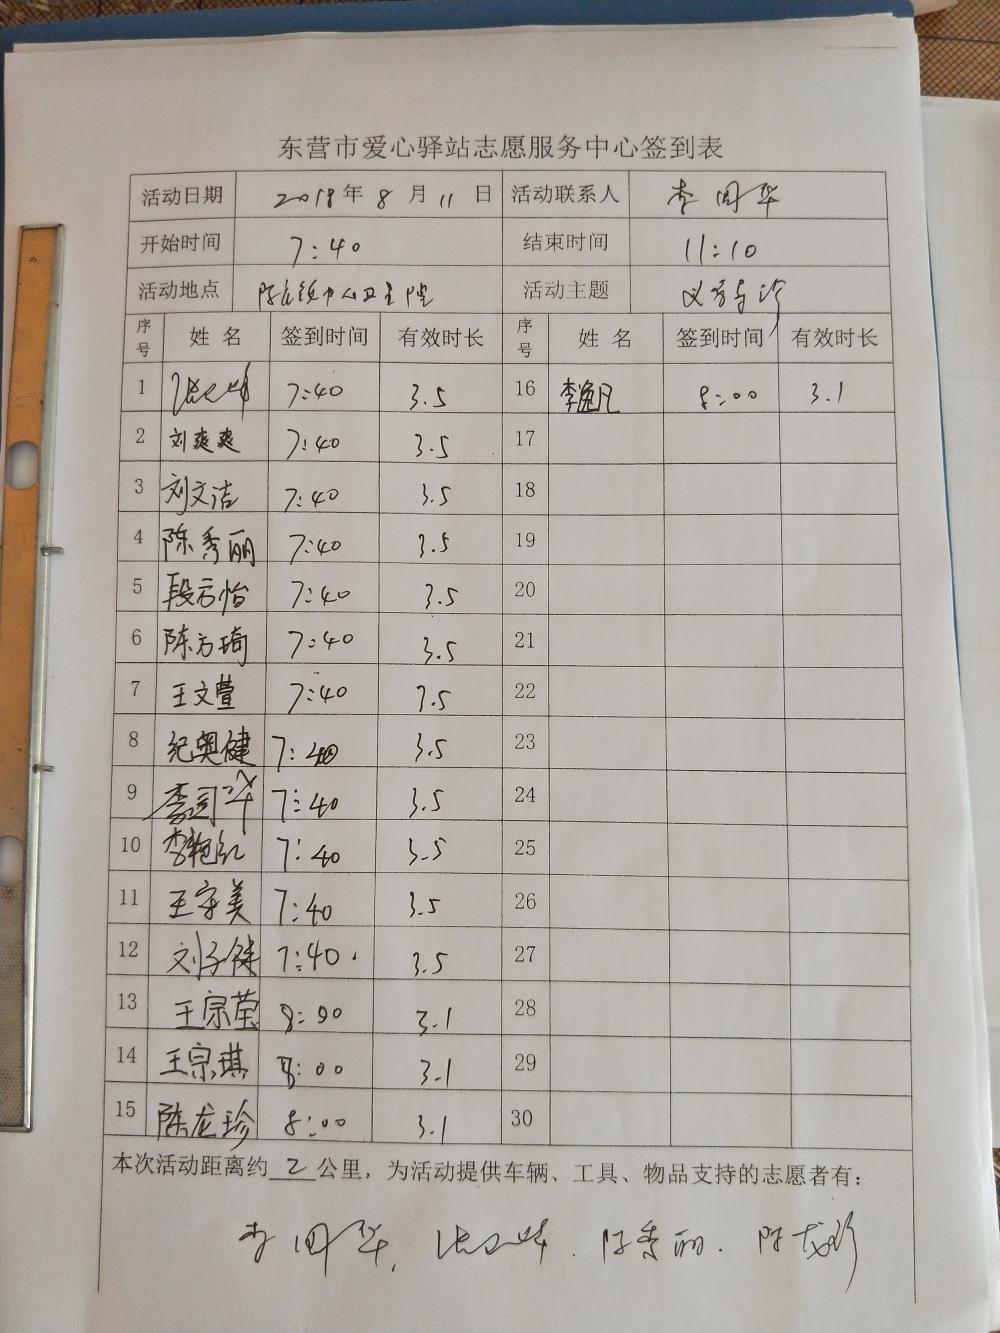 东营市爱心驿站志愿服务中心签到表
活动日期 2018年 8 月 11 日 活动联系人 李国华
开始时间 7:40 结束时间 11:10
活动地点 活动主题
序号 姓名 签到时间 有效时长 序号 姓名 签到时间 有效时长
1 7:40 3.5 16 李逸凡 8:00 3.1
2 刘爽爽 7:40 3.5 17
3 刘文洁 7:40 3.5 18
4 陈秀丽 7:40 3.5 19
5 段方怡 7:40 3.5 20
6 陈方琦 7:40 3.5 21
7 王文萱 7:40 3.5 22
8 纪奥健 7:40 3.5 23
9 李国华 7:40 3.5 24
10 李艳红 7:40 3.5 25
11 王守美 7:40 3.5 26
12 刘子健 7:40 3.5 27
13 王宗莹 8:00 3.1 28
14 王宗琪 8:00 3.1 29
15 陈龙珍 8:00 3.1 30
本次活动距离约 2 公里，为活动提供车辆、工具、物品支持的志愿者有：
李国华, . 陈秀丽. 陈龙珍